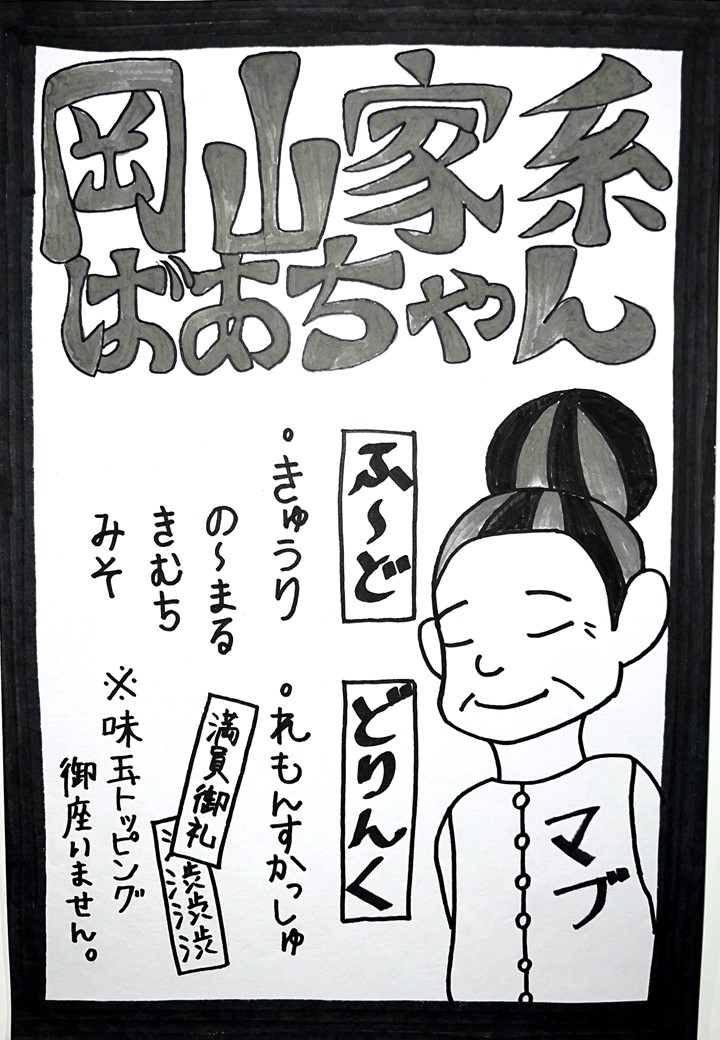 岡山家系
ばあちゃん
ふ〜ど
・きゅうり
の〜まる
きむち
みそ
どりんく
・れもんすかっしゅ
満員御礼
渋渋渋
※味玉トッピング
御座いません。
マブ